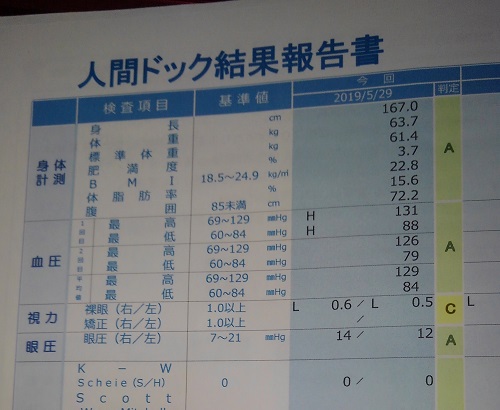 人間ドック結果報告書
検査項目 基準値 今回 判定
2019/5/29
身体計測 身長 cm 167.0 A
体重 kg 63.7
標準体重 kg 61.4
肥満度 % 3.7
BMI 18.5～24.9 kg/㎡ 22.8
体脂肪率 % 15.6
腹囲 85未満 cm 72.2
血圧 1回目 最高 69～129 mmHg H 131 A
最低 60～84 mmHg H 88
2回目 最高 69～129 mmHg 126
最低 60～84 mmHg 79
平均値 最高 69～129 mmHg 129
最低 60～84 mmHg 84
視力 裸眼(右／左) 1.0以上 L 0.6 / L 0.5 C L
矯正(右／左) 1.0以上 /
眼圧 眼圧(右／左) 7～21 mmHg 14 / 12 A
K－W
Scheie(S/H) 0 0 / 0
Scott